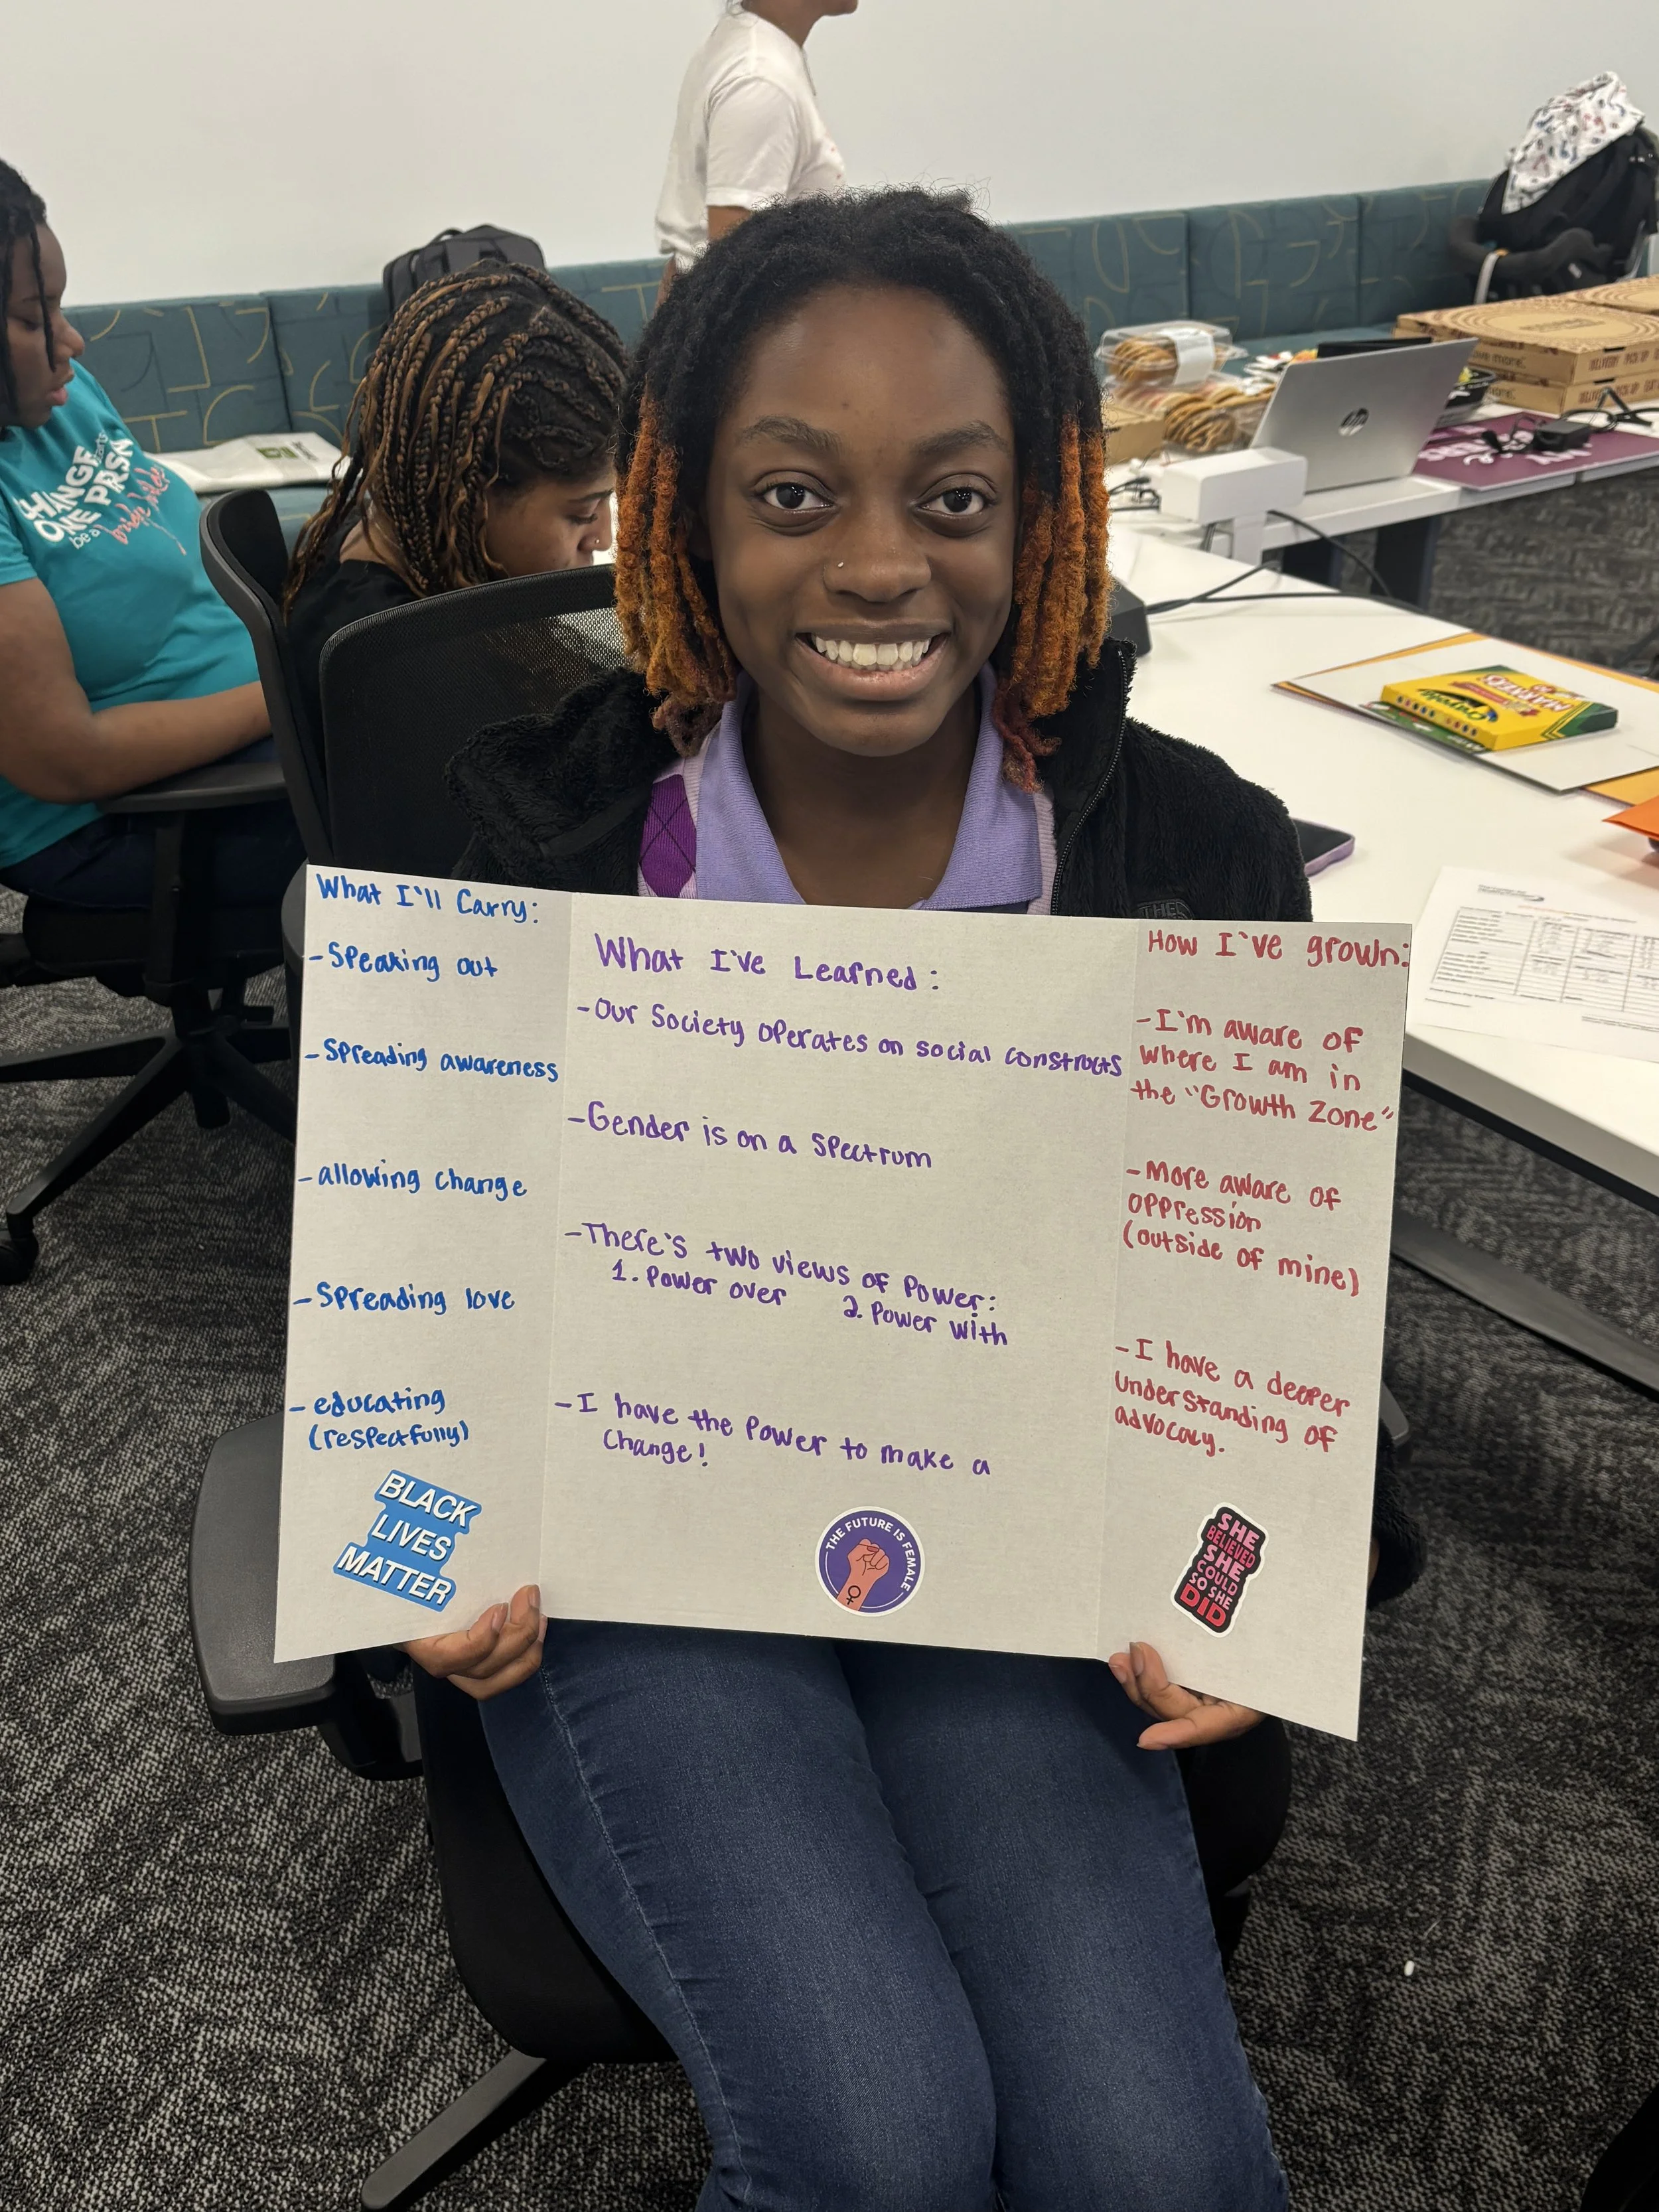 What I'll Carry:
- Speaking out
- Spreading awareness
- allowing change
- Spreading love
- educating
(respectfully)
BLACK
LIVES
MATTER
What I've Learned:
- Our Society operates on social constructs
- Gender is on a spectrum
- There's two views of Power:
1. Power over 2. Power with
- I have the Power to make a
Change!
THE FUTURE IS FEMALE
How I've grown:
- I'm aware of
where I am in
the "Growth Zone"
- More aware of
oppression
(outside of mine)
- I have a deeper
understanding of
advocacy.
SHE
BELIEVED
SHE
COULD
SO SHE
DID
CHANGE
ONE PRSN
be a
hp
Crayola
MARKERS
THE